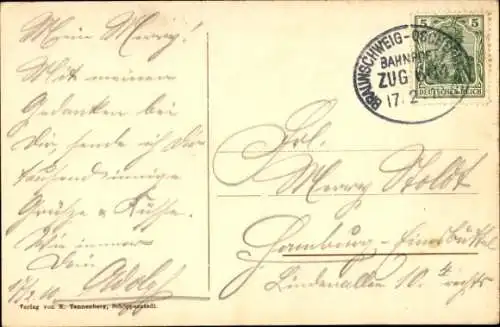 Mein Merry!
Mit meinen
Gedanken bei
Dir sende ich Dir
tausend innige
Grüße & Küsse.
Wie immer
Dein
Adolf
17/2.10
Verlag von K. Tannenberg, Schöppenstedt.
BRAUNSCHWEIG-OSCHERSL
BAHNPOST
ZUG
17.2
5 5
DEUTSCHES REICH
Frl.
Merry Stoldt
Hamburg-Eimsbüttel
Lindenallee 10. rechts